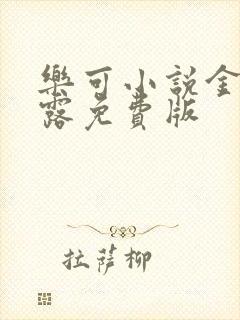 樂可小説金
露免費版
拉薩柳